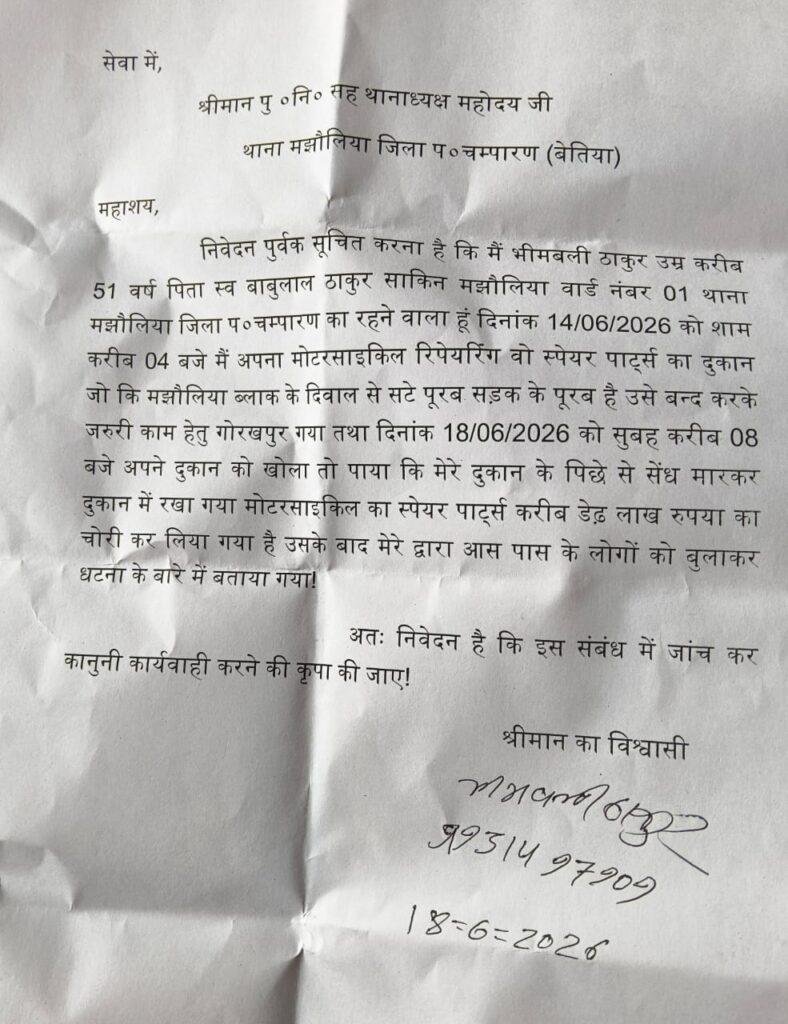 सेवा में,
श्रीमान पु ०नि० सह थानाध्यक्ष महोदय जी
थाना मझौलिया जिला प०चम्पारण (बेतिया)
महाशय,
निवेदन पुर्वक सूचित करना है कि मैं भीमबली ठाकुर उम्र करीब
51 वर्ष पिता स्व बाबुलाल ठाकुर साकिन मझौलिया वार्ड नंबर 01 थाना
मझौलिया जिला प०चम्पारण का रहने वाला हूं दिनांक 14/06/2026 को शाम
करीब 04 बजे मैं अपना मोटरसाइकिल रिपेयरिंग वो स्पेयर पार्ट्स का दुकान
जो कि मझौलिया ब्लाक के दिवाल से सटे पूरब सड़क के पूरब है उसे बन्द करके
जरुरी काम हेतु गोरखपुर गया तथा दिनांक 18/06/2026 को सुबह करीब 08
बजे अपने दुकान को खोला तो पाया कि मेरे दुकान के पिछे से सेंध मारकर
दुकान में रखा गया मोटरसाइकिल का स्पेयर पार्ट्स करीब डेढ़ लाख रुपया का
चोरी कर लिया गया है उसके बाद मेरे द्वारा आस पास के लोगों को बुलाकर
धटना के बारे में बताया गया!
अतः निवेदन है कि इस संबंध में जांच कर
कानुनी कार्यवाही करने की कृपा की जाए!
श्रीमान का विश्वासी
ठाकुर
9931497909
18=6=2026